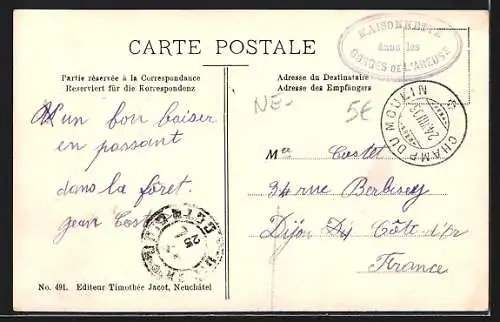 MAISONNETTE
dans les
GORGES DE L'AREUSE
CARTE POSTALE
Partie réservée à la Correspondance
Reserviert für die Korrespondenz
Adresse du Destinataire
Adresse des Empfängers
NE-
5€
CHAMP DU MOULIN
24.VIII.12
un bon baiser
en passant
dans la fôret.
Jean Cost
25
Costet
34 rue Berbisey
Dijon Côte-d'Or
France
No. 491. Editeur Timothée Jacot, Neuchâtel